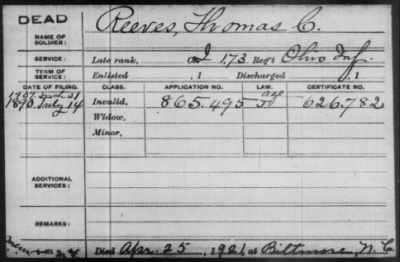 DEAD
NAME OF SOLDIER: Reeves, Thomas C.
SERVICE: Late rank, I 173 Reg't Ohio Inf.
TERM OF SERVICE: Enlisted , 1 Discharged , 1
DATE OF FILING. CLASS. APPLICATION NO. LAW. CERTIFICATE NO.
1890. July 14 Invalid, 865.495 626.782
Age
Widow,
Minor,
ADDITIONAL SERVICES:
REMARKS:
Died Apr. 25, 1921, at Biltmore N.C.